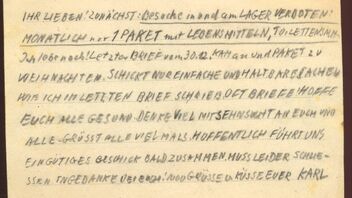 IHR LIEBEN! ZUNÄCHST: Besuche in und am LAGER VERBOTEN!
MONATLICH nur 1 PAKET mit LEBENSMITTELN, TOILETTENSACH.
Ich lebe noch! Letzter BRIEF vom 30.12. KAM an und 1 PAKET ZU
WEIHNACHTEN. SCHICKT NUR EINFACHE UND HALTBARE SACHEN
WIE ICH IM LETZTEN BRIEF SCHRIEB. OFT BRIEFE HOFFE
EUCH ALLE GESUND. DENKE VIEL MIT SEHNSUCHT AN EUCH UND
ALLE. GRÜSST ALLE VIELMALS. HOFFENTLICH FÜHRT UNS
EIN GÜTIGES GESCHICK BALD ZUSAMMEN. MUSS LEIDER SCHLIE-
SSEN. IN GEDANKEN BEI EUCH! 1000 GRÜSSE u KÜSSE EUER KARL